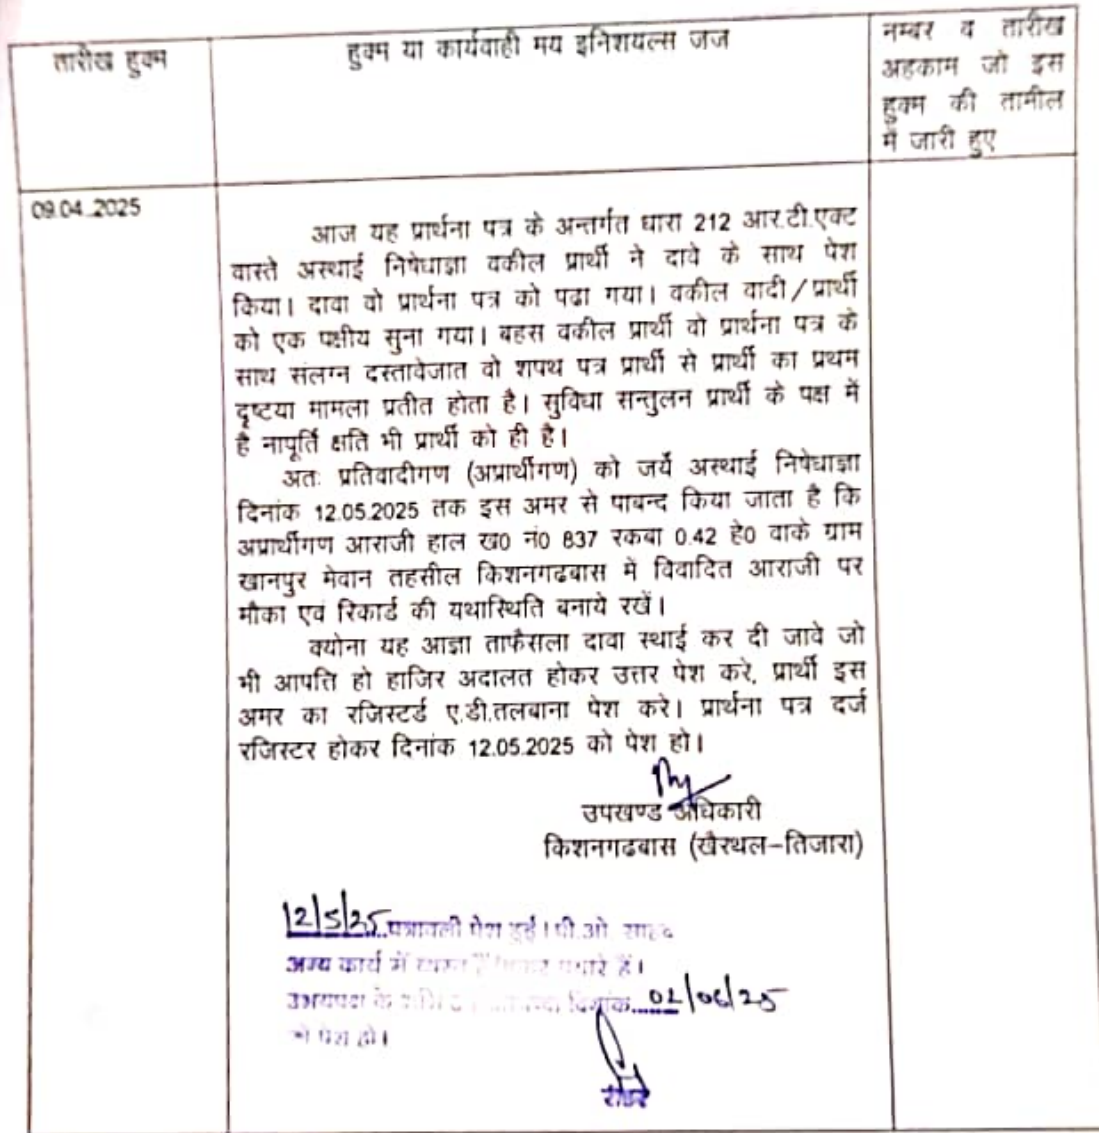 तारीख हुक्म
हुक्म या कार्यवाही मय इनिशयल्स जज
नम्बर व तारीख
अहकाम जो इस
हुक्म की तामील
में जारी हुए
09.04..2025
आज यह प्रार्थना पत्र के अन्तर्गत धारा 212 आर.टी.एक्ट
वास्ते अस्थाई निषेधाज्ञा वकील प्रार्थी ने दावे के साथ पेश
किया। दावा वो प्रार्थना पत्र को पढा गया। वकील वादी/प्रार्थी
को एक पक्षीय सुना गया। बहस वकील प्रार्थी वो प्रार्थना पत्र के
साथ संलग्न दस्तावेजात वो शपथ पत्र प्रार्थी से प्रार्थी का प्रथम
दृष्टया मामला प्रतीत होता है। सुविधा सन्तुलन प्रार्थी के पक्ष में
है नापूर्ति क्षति भी प्रार्थी को ही है।
अतः प्रतिवादीगण (अप्रार्थीगण) को जर्ये अस्थाई निषेधाज्ञा
दिनांक 12.05.2025 तक इस अमर से पाबन्द किया जाता है कि
अप्रार्थीगण आराजी हाल ख0 नं0 837 रकबा 0.42 हे0 वाके ग्राम
खानपुर मेवान तहसील किशनगढबास में विवादित आराजी पर
मौका एवं रिकार्ड की यथास्थिति बनाये रखें।
क्योना यह आज्ञा ताफैसला दावा स्थाई कर दी जावे जो
भी आपत्ति हो हाजिर अदालत होकर उत्तर पेश करे, प्रार्थी इस
अमर का रजिस्टर्ड ए.डी.तलबाना पेश करे। प्रार्थना पत्र दर्ज
रजिस्टर होकर दिनांक 12.05.2025 को पेश हो।
उपखण्ड अधिकारी
किशनगढबास (खैरथल-तिजारा)
12/5/25 पत्रावली पेश हुई। पी.ओ.
अन्य कार्य में व्यस्त हैं हैं।
उभयपक्ष के दिनांक
को पेश हो।
रीडर